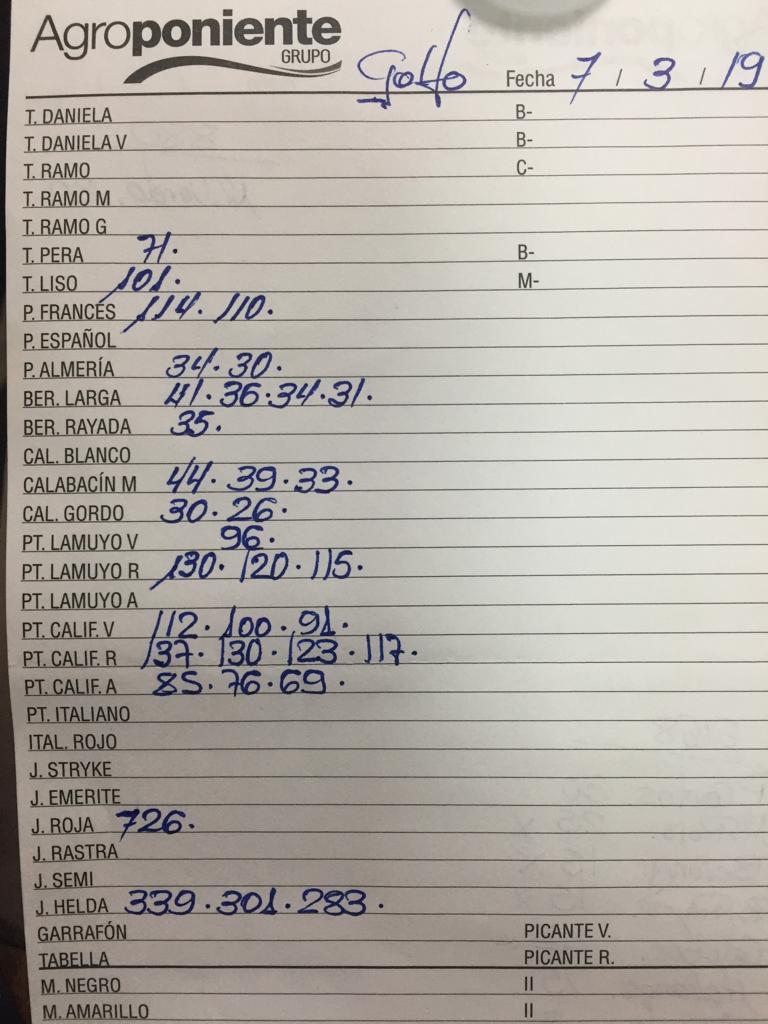 Agroponiente
GRUPO
Golfo Fecha 7 / 3 / 19
T. DANIELA B-
T. DANIELA V B-
T. RAMO C-
T. RAMO M
T. RAMO G
T. PERA 71. B-
T. LISO 101. M-
P. FRANCÉS 114. 110.
P. ESPAÑOL
P. ALMERÍA 34. 30.
BER. LARGA 41. 36. 34. 31.
BER. RAYADA 35.
CAL. BLANCO
CALABACÍN M 44. 39. 33.
CAL. GORDO 30. 26.
PT. LAMUYO V 96.
PT. LAMUYO R 130. 120. 115.
PT. LAMUYO A
PT. CALIF. V 112. 100. 91.
PT. CALIF. R 137. 130. 123. 117.
PT. CALIF. A 85. 76. 69.
PT. ITALIANO
ITAL. ROJO
J. STRYKE
J. EMERITE
J. ROJA 726.
J. RASTRA
J. SEMI
J. HELDA 339. 301. 283.
GARRAFÓN PICANTE V.
TABELLA PICANTE R.
M. NEGRO II
M. AMARILLO II